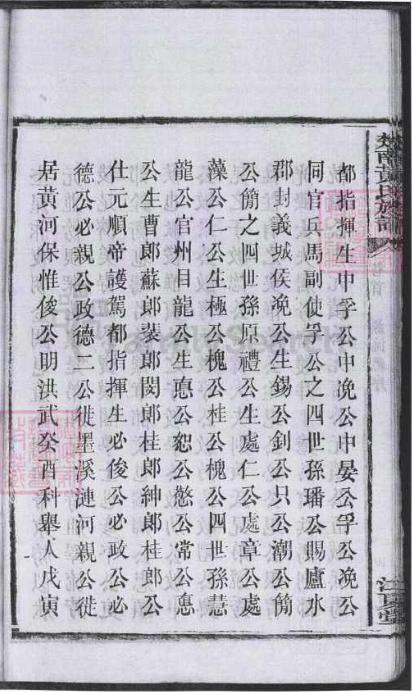 都指揮生中孚公中浼公中晏公孚公浼公
同官兵馬副使孚公之四世孫璠公賜廬水
郡封義城侯浼公生錫公釗公只公潮公簡
公簡之四世孫原禮公生處仁公處章公處
藻公仁公生極公槐公桂公槐公四世孫慧
龍公官州目龍公生悳公恕公憼公常公悳
公生曹郎蘇郎裴郎閔郎桂郎紳郎桂郎公
仕元順帝護駕都指揮生必俊公必政公必
德公必親公政德二公徙墨溪漣河親公徙
居黃河保惟俊公明洪武癸酉科舉人戊寅